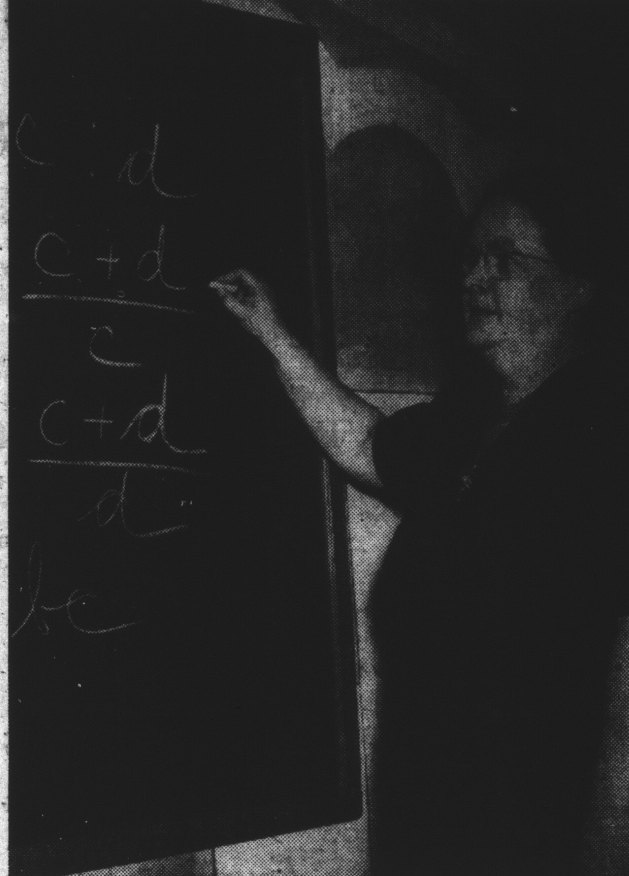 c : d
c + d
c
c + d
d
bc